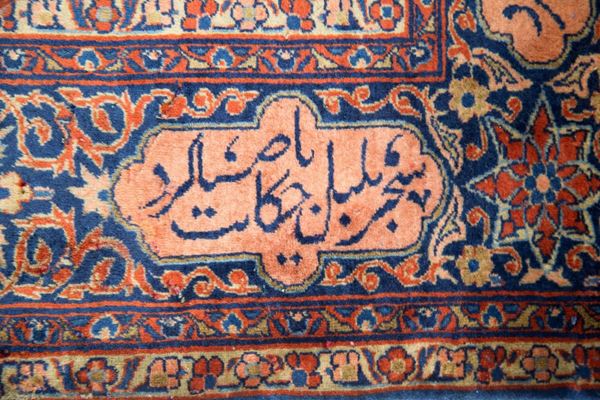 سحر بلبل حکایت با صبا کرد